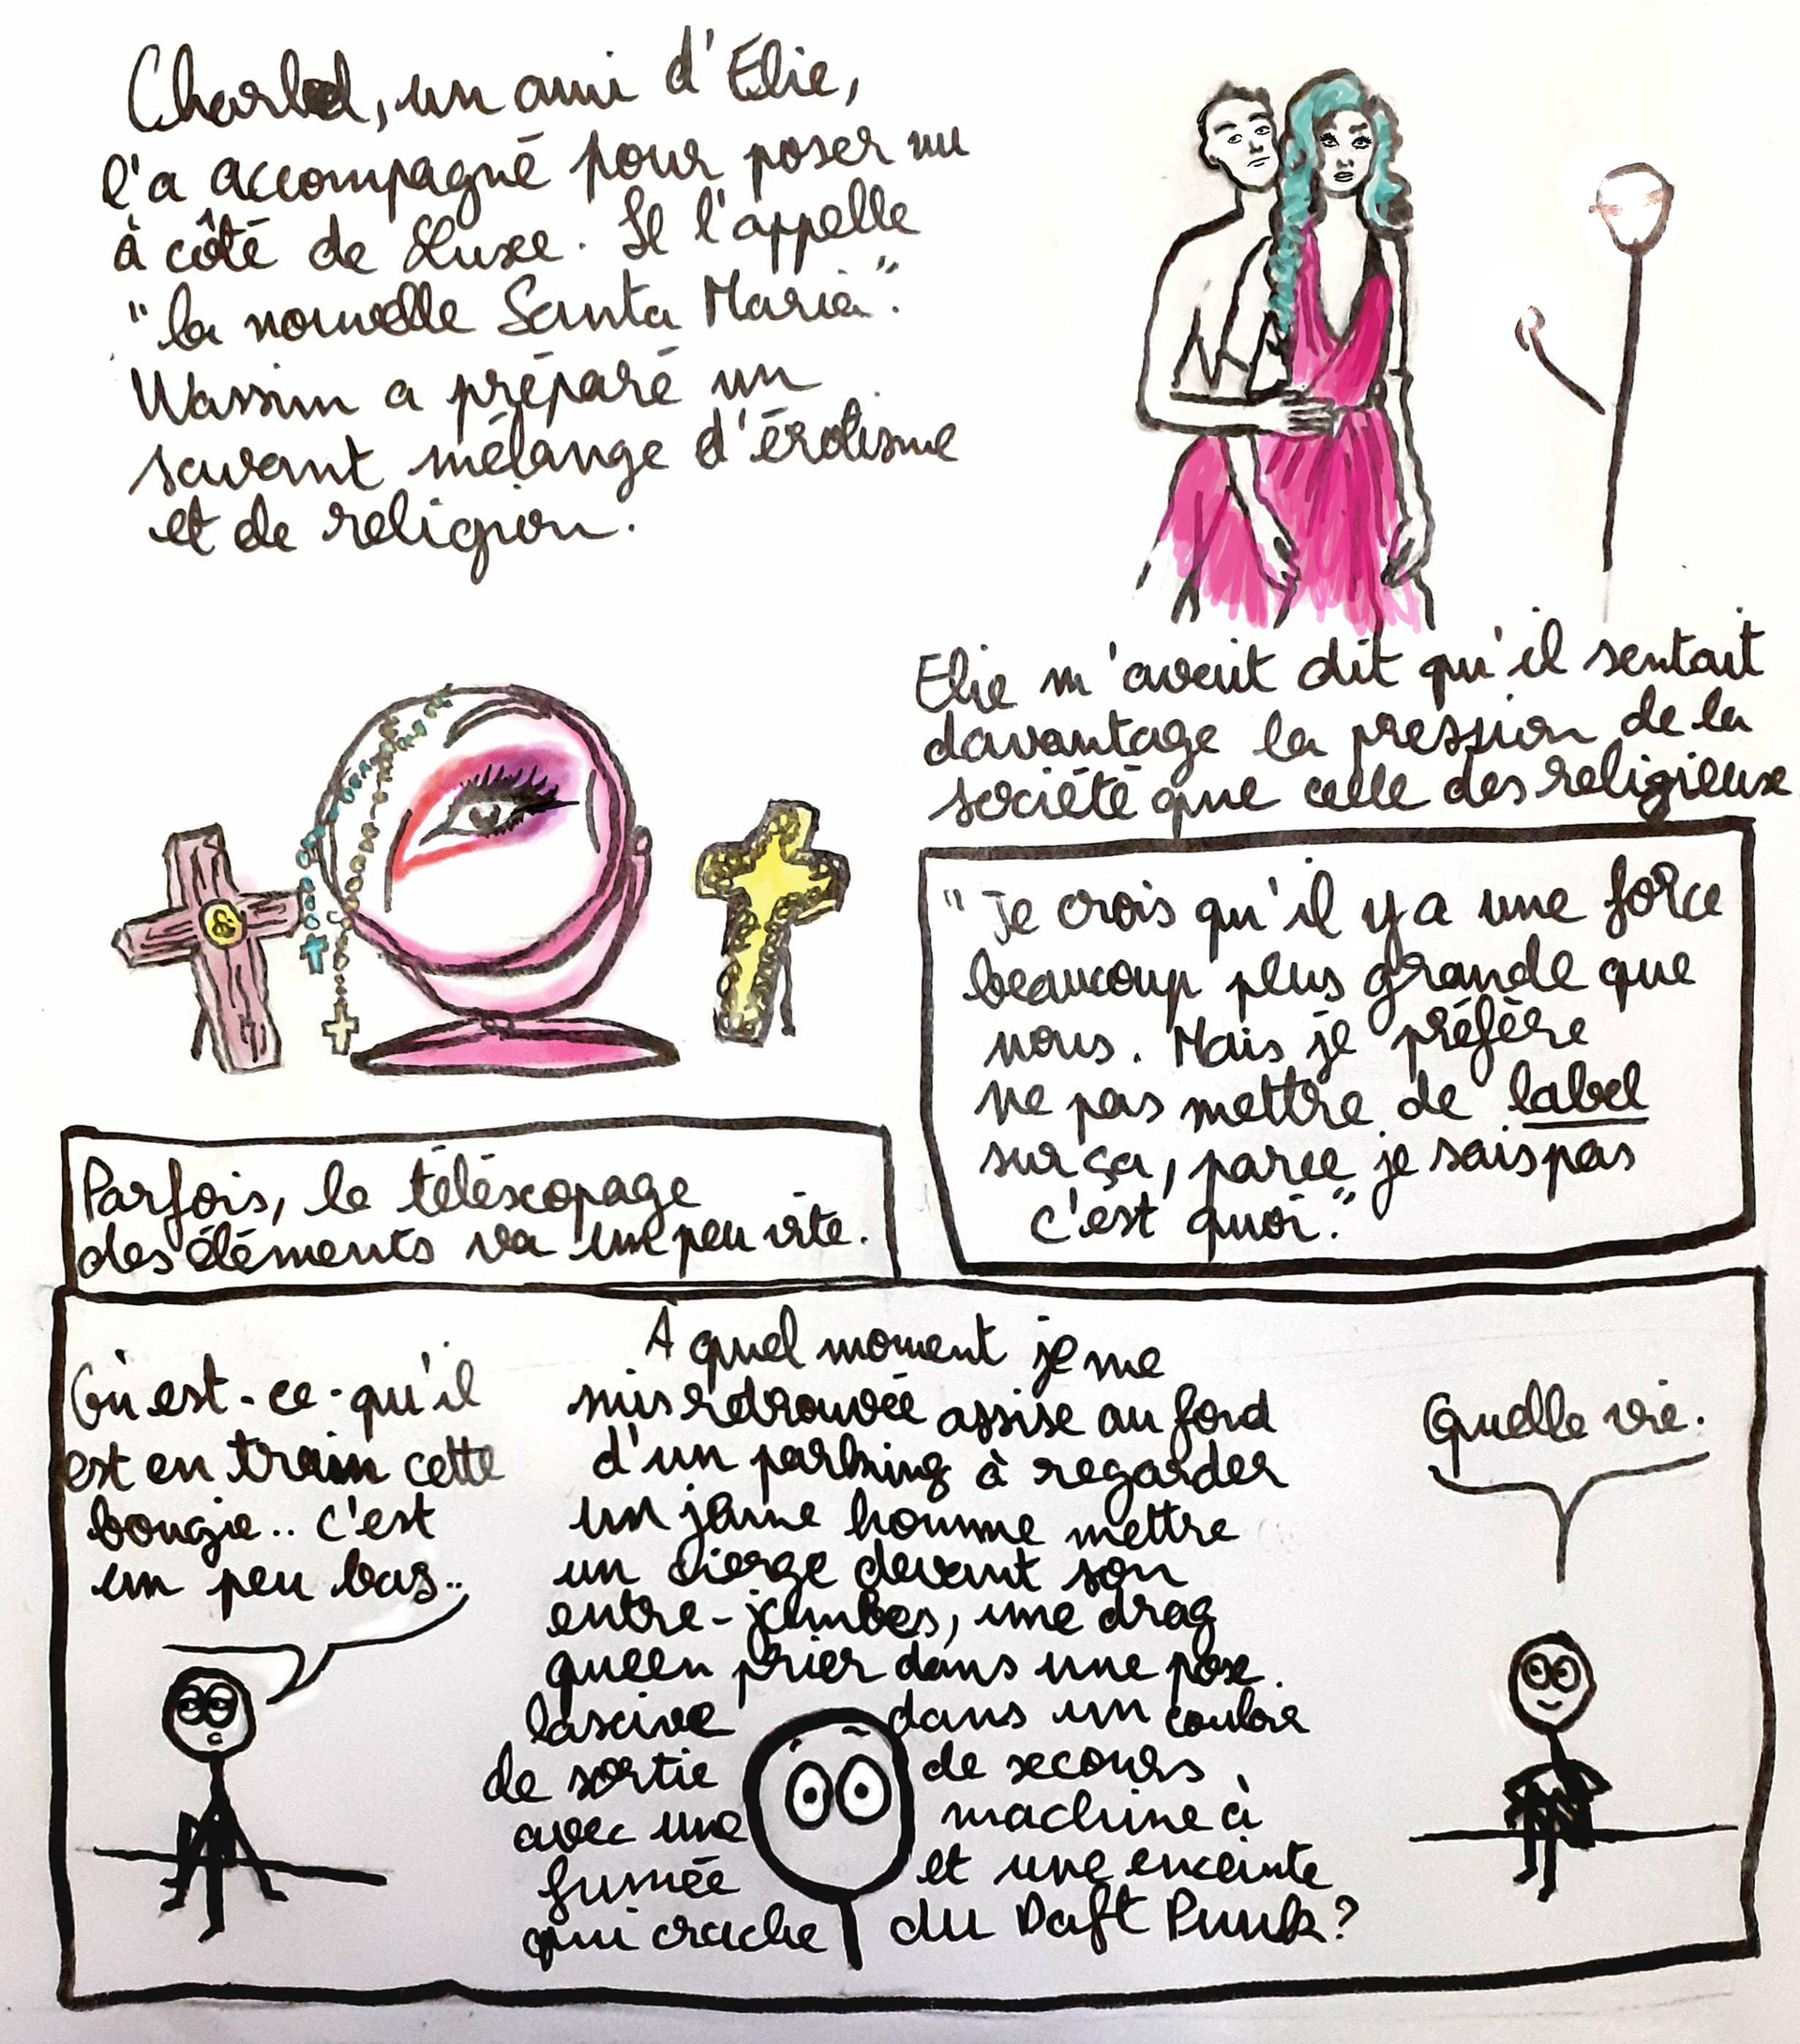 Charbel, un ami d'Elie,
l'a accompagné pour poser nu
à côté de Luxe. Il l'appelle
"la nouvelle Santa Maria".
Wassim a préparé un
savant mélange d'érotisme
et de religion.
Elie m'avait dit qu'il sentait
davantage la pression de la
société que celle des religieux
&
"Je crois qu'il y a une force
beaucoup plus grande que
nous. Mais je préfère
ne pas mettre de label
sur ça, parce je sais pas
c'est quoi."
Parfois, le téléscopage
des éléments va un peu vite.
Qu'est-ce-qu'il
est en train cette
bougie.. c'est
un peu bas..
À quel moment je me
suis retrouvée assise au fond
d'un parking à regarder
un jeune homme mettre
un cierge devant son
entre-jambes, une drag
queen prier dans une pose
lascive dans un couloir
de sortie de secours
avec une machine à
fumée et une enceinte
qui crache du Daft Punk?
Quelle vie.